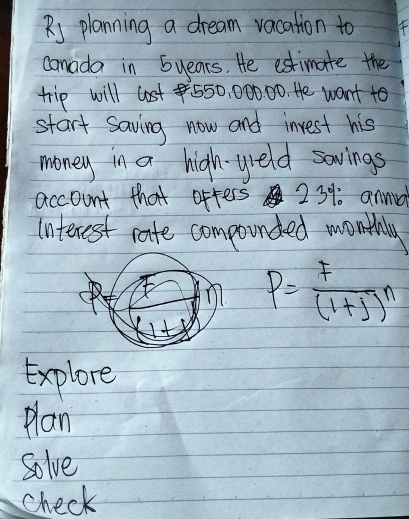 Rj planning a dream vacation to
Canada in 5 years. He estimate the
trip will cost ₱550,000.00. He want to
start saving now and invest his
money in a high-yield savings
account that offers 23% annual
interest rate compounded monthly
P= F / (1+j)^n
Explore
Plan
Solve
Check